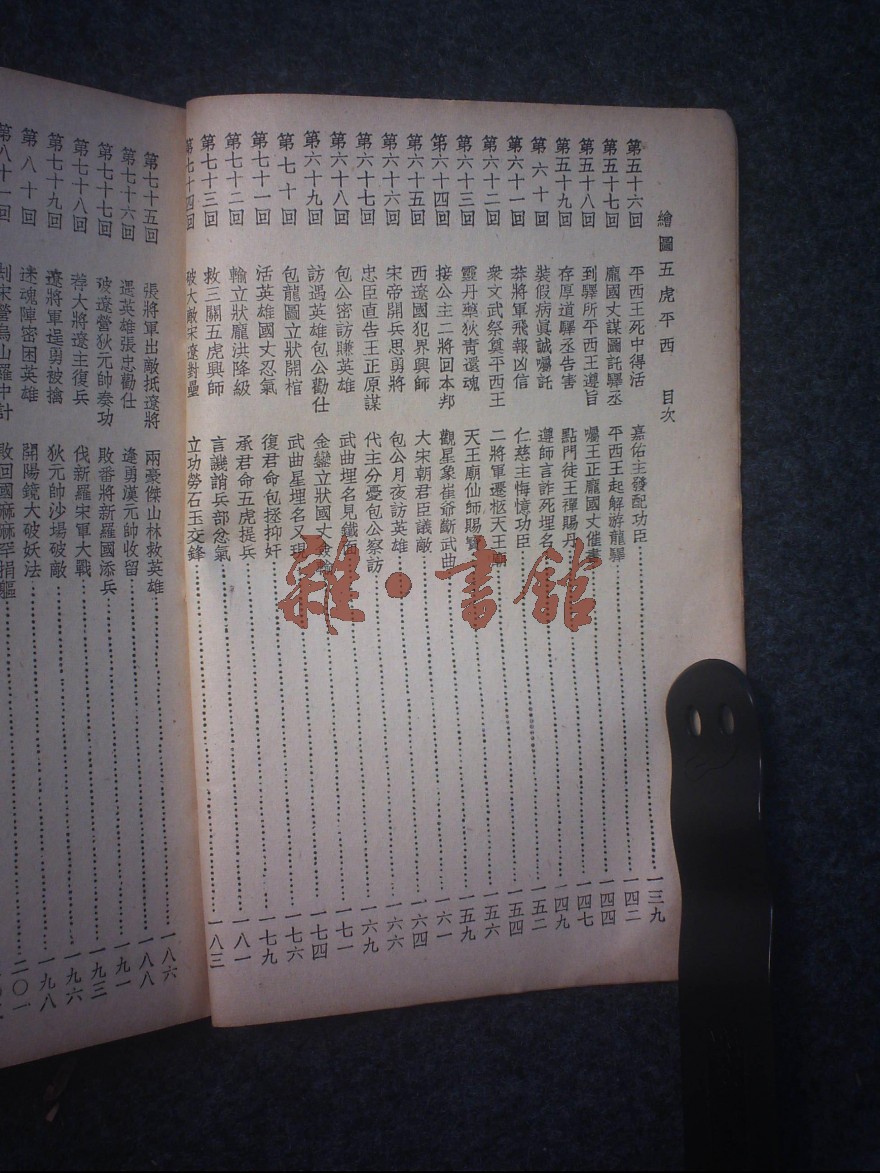 繪圖五虎平西 目次
第五十六回 平西王死中得活 嘉佑主發配功臣 一三九
第五十七回 龐國丈謀圖託驛丞 平西王起解游龍驛 一四二
第五十八回 到驛所平西王遵旨 囑王正龐國丈催書 一四四
第五十九回 存厚道驛丞告害 點門徒王禪賜丹 一四七
第六十回 裝假病眞誠囑託 遵師言詐死埋名 一四九
第六十一回 恭將軍飛報凶信 仁慈主悔憶功臣 一五二
第六十二回 衆文武祭奠平西王 二將軍遷柩天王廟 一五四
第六十三回 靈丹藥狄青還魂 天王廟仙師賜寶 一五六
第六十四回 接公主二將回本邦 觀星象崔爺斷武曲 一五九
第六十五回 西遼國犯界興師 大宋朝君臣議敵 一六一
第六十六回 宋帝開兵思勇將 包公月夜訪英雄 一六四
第六十七回 忠臣直告王正原謀 代主分憂包公察訪 一六六
第六十八回 包公密訪賺英雄 武曲埋名見鐵面 一六九
第六十九回 訪遇英雄包公勸仕 金鑾立狀國丈 一七一
第七十回 包龍圖立狀開棺 武曲星埋名又現 一七四
第七十一回 活英雄國丈忍氣 復君命包拯抑奸 一七六
第七十二回 輸立狀龐洪降級 承君命五虎提兵 一七九
第七十三回 救三關五虎興師 言譏誚兵部忿氣 一八一
第七十四回 破大敵宋遼對壘 立功勞石玉交鋒 一八三
第七十五回 張將軍出敵抵遼將 兩豪傑山林救英雄 一八六
第七十六回 遇英雄張忠勸仕 逢勇漢元帥收留 一八八
第七十七回 破遼營狄元帥奏功 敗番將新羅國添兵 一九一
第七十八回 荐大將遼主復兵 伐新羅宋軍大戰 一九三
第七十九回 遼將軍逞勇被擒 狄元帥沙場破敵 一九六
第八十回 迷魂陣密困英雄 開陽鏡大破妖法 一九八
第八十一回 刦宋營烏山羅中計 敗回國麻麻罕捐軀 二〇一
雜·書館